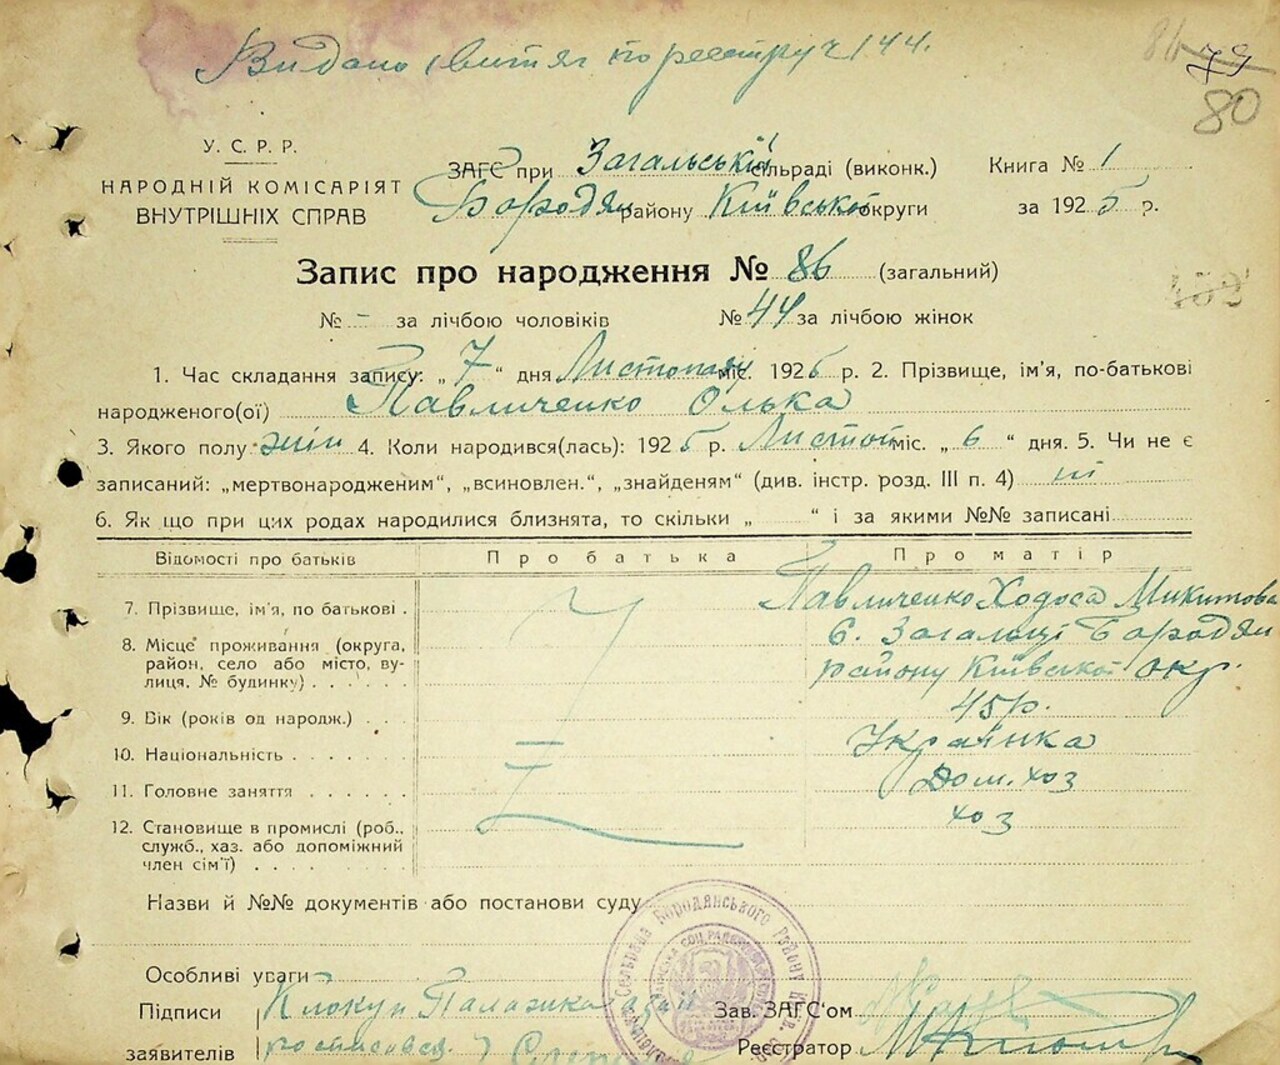 Видано витяг по реєстру ч 144.
79
80
У. С. Р. Р.
НАРОДНІЙ КОМІСАРІЯТ
ВНУТРІШНІХ СПРАВ
ЗАГС при Загальській сільраді (виконк.) Книга № 1
Бородян району Київської округи за 1925 р.
Запис про народження № 86 (загальний)
№ - за лічбою чоловіків № 44 за лічбою жінок
1. Час складання запису: „ 7 “ дня Листопаду міс. 1925 р. 2. Прізвище, ім'я, по-батькові
народженого(ої) Павличенко Олька
3. Якого полу жін 4. Коли народився(лась): 1925 р. Листоп міс. „ 6 “ дня. 5. Чи не є
записаний: „мертвонародженим“, „всиновлен.“, „знайденям“ (див. інстр. розд. III п. 4) ні
6. Як що при цих родах народилися близнята, то скільки „ “ і за якими №№ записані
Відомості про батьків Про батька Про матір
7. Прізвище, ім'я, по батькові . Павличенко Ходоса Микитова
8. Місце проживання (округа, район, село або місто, вулиця, № будинку) с. Загальці Бородян
району Київської окр.
9. Вік (років од народж.) . . . 45 р.
10. Національність . . . . . . Українка
11. Головне заняття . . . . . . Дом. хоз
12. Становище в промислі (роб., служб., хаз. або допоміжний член сім'ї) . . . . хоз
Назви й №№ документів або постанови суду
Особливі уваги
Підписи Клокун Палажка Зав. ЗАГС'ом
заявителів Реєстратор
Сельрада Бородянського Району